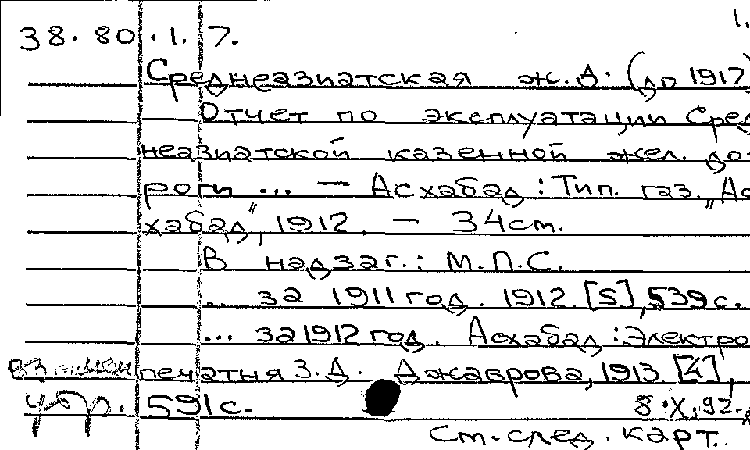 1.
38.80.1.7.
Среднеазиатская ж.д. (до 1917)
Отчет по эксплуатации Сред
неазиатской казенной жел. до
роги ... — Асхабад : Тип. газ. „Ас
хабад“, 1912. — 34см.
В надзаг.: М.П.С.
... за 1911 год. 1912. [5], 539 с.
... за 1912 год. Асхабад : Электро
печатня З.Д. Джаврова, 1913. [4],
591 с. 8.X.92.
См. след. карт.